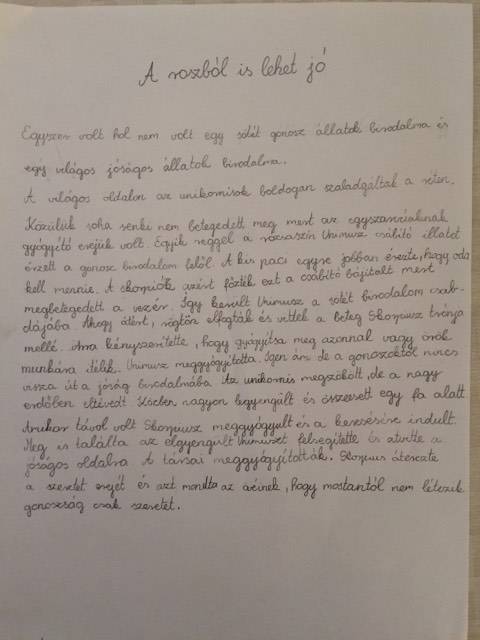 A roszból is lehet jó
Egyszer volt hol nem volt egy sötét gonosz állatok birodalma és
egy világos jóságos állatok birodalma.
A világos oldalon az unikornisok boldogan szaladgáltak a réten.
Közülük soha senki nem betegedett meg mert az egyszarvúaknak
gyógyító erejük volt. Egyik reggel a rózsaszín Unimusz csábító illatot
érzett a gonosz birodalom felől. A kis paci egyre jobban érezte, hogy oda
kell mennie. A skorpiók azért főzték ezt a csábító bájitalt mert
megbetegedett a vezér. Így került Unimusz a sötét birodalom csab-
dájába. Ahogy átért, rögtön elfogták és vitték a beteg Skorpiusz trónja
mellé. Arra kényszerítette, hogy gyógyítsa meg azonnal vagy örök
munkára ítélik. Unimusz meggyógyította. Igen ám de a gonoszoktól nincs
vissza út a jóság birodalmába. Az unikornis megszökött, de a nagy
erdőben eltévedt. Közben nagyon legyengült és összeesett egy fa alatt.
Amikor távol volt Skorpiusz meggyógyult és a keresésére indult.
Meg is találta az elgyengült Unimuszt felsegítette és átvitte a
jóságos oldalra. A társai meggyógyították. Skorpiusz átérezte
a szeretet erejét és azt mondta az övéinek, hogy mostantól nem létezik
gonoszság csak szeretet.